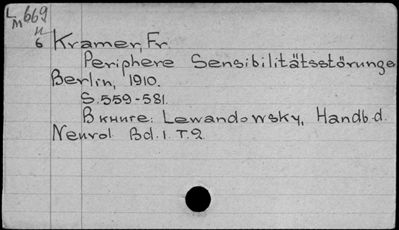 L/M 669
11
6
Kramer, Fr.
Periphere Sensibilitätsstörunge
Berlin, 1910.
S. 559-581.
В книге: Lewandowsky, Handb. d.
Neurol. Bd. 1. T. 2.